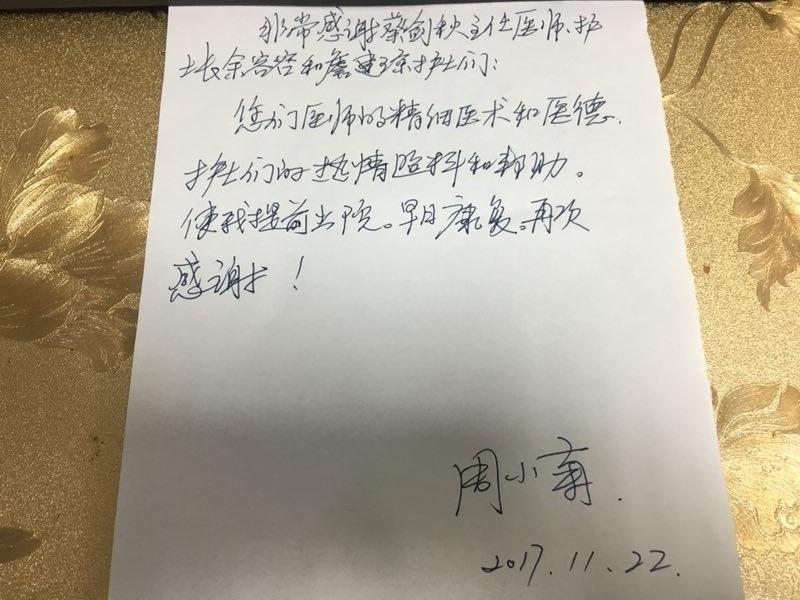 非常感谢蔡剑秋主任医师、护
士长余容容和詹建琼护士们:
您们医师的精细医术和医德,
护士们的热情照料和帮助。
使我提前出院。早日康复。再次
感谢!
周小
2017.11.22.